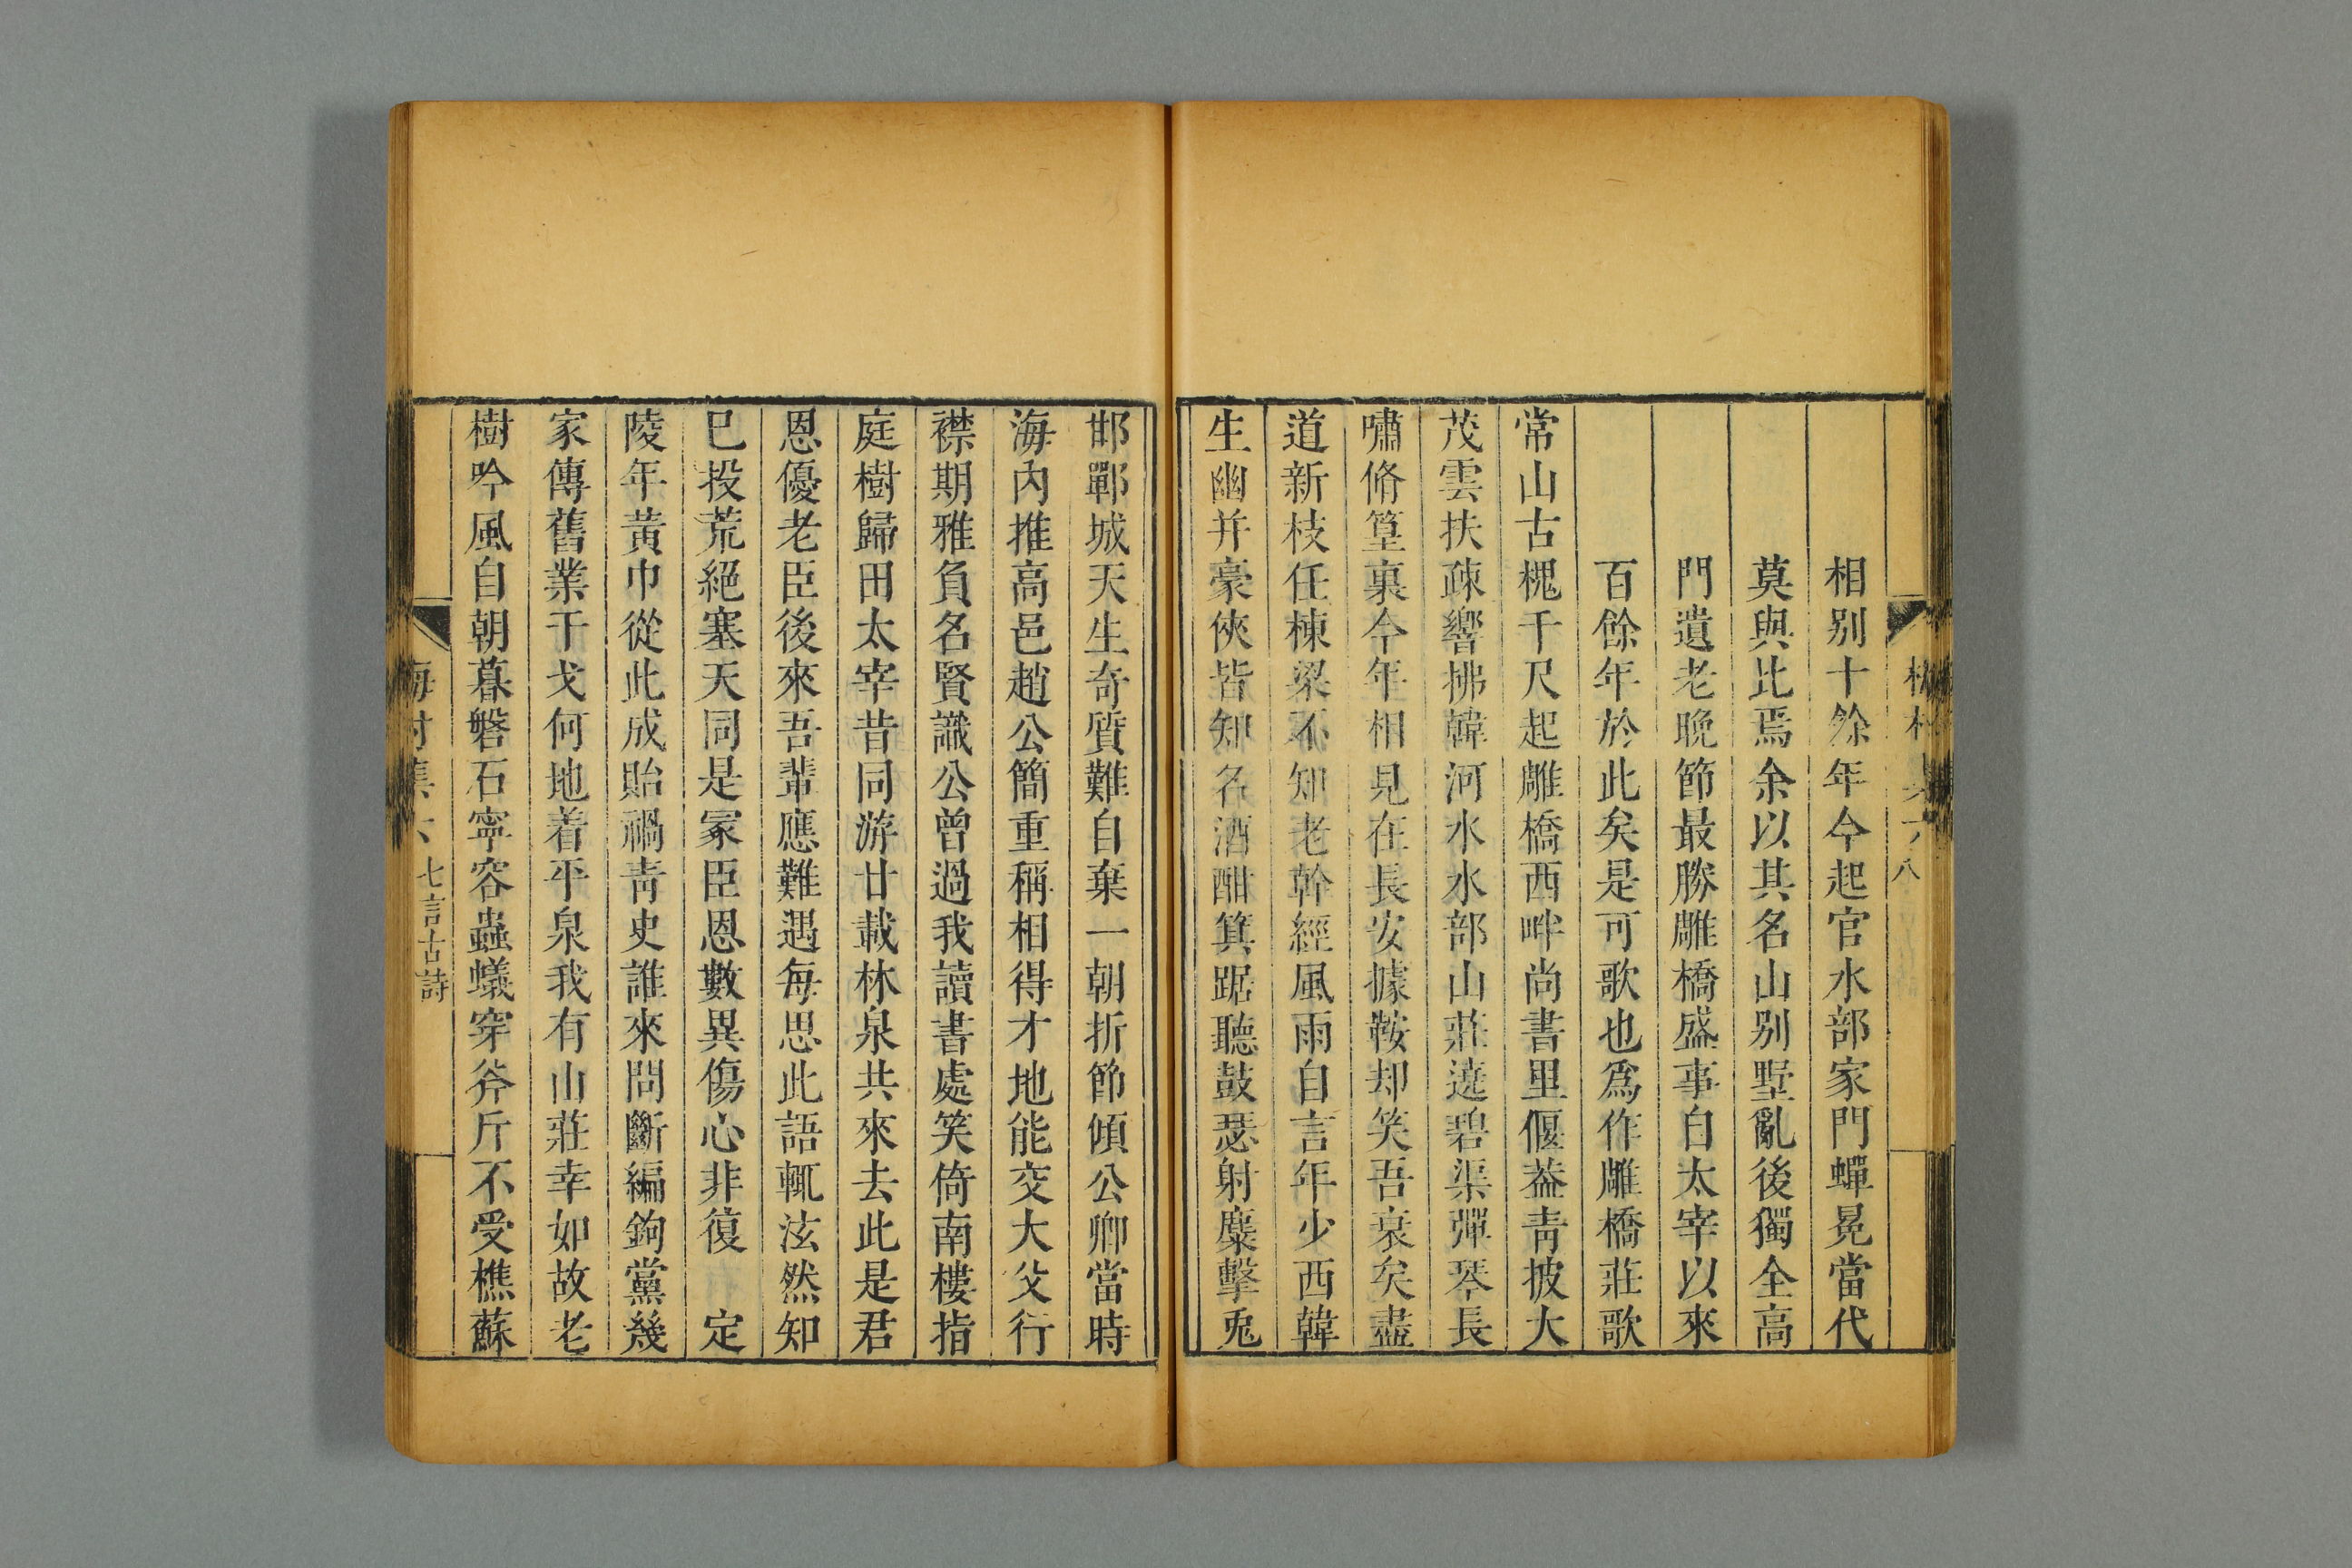 相别十餘年今起官水部家門蟬冕當代
莫與比焉余以其名山别墅亂後獨全高
門遺老晚節最勝雕橋盛事白太宰以來
百餘年於此矣是可歌也爲作雕橋莊歌
常山古槐千尺起雕橋西畔尚書里偃葢青披大
茂雲扶疎響拂韓河水水部山莊遶碧渠彈琴長
嘯脩篁裏今年相見在長安據鞍却笑吾衰矣盡
道新枝任棟梁不知老幹經風雨自言年少西韓
生幽并豪俠皆知名酒酣箕踞聽鼓瑟射麋擊兎
邯鄲城天生奇質難自棄一朝折節傾公卿當時
海内推高邑趙公簡重稱相得才地能交大父行
襟期雅負名賢識公曾過我讀書處笑倚南樓指
庭樹歸田太宰昔同游廿載林泉共來去此是君
恩優老臣後來吾輩應難遇每思此語輒泫然知
已投荒絕塞天同是冢臣恩數異傷心非復 定
陵年黃巾從此成貽禍青史誰來問斷編鉤黨幾
家傳舊業干戈何地着平泉我有山莊幸如故老
樹吟風自朝暮磐石寧容蟲蟻穿斧斤不受樵蘇
七言古詩
八